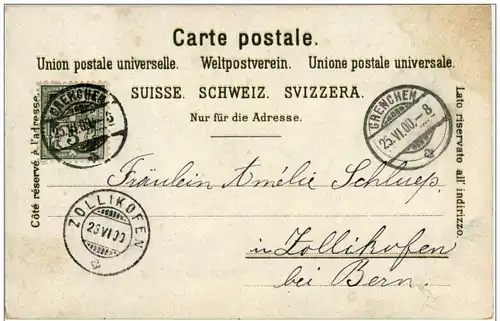 Carte postale.
Union postale universelle. Weltpostverein. Unione postale universale.
SUISSE. SCHWEIZ. SVIZZERA.
Nur für die Adresse.
Côté réservé à l'adresse.
Lato riservato all' indirizzo.
GRENCHEN
25.VI.00.
GRENCHEN
25.VI.00.-8
ZOLLIKOFEN
26 VI 00
Fräulein Amélie Schluep.
in Zollikofen
bei Bern.